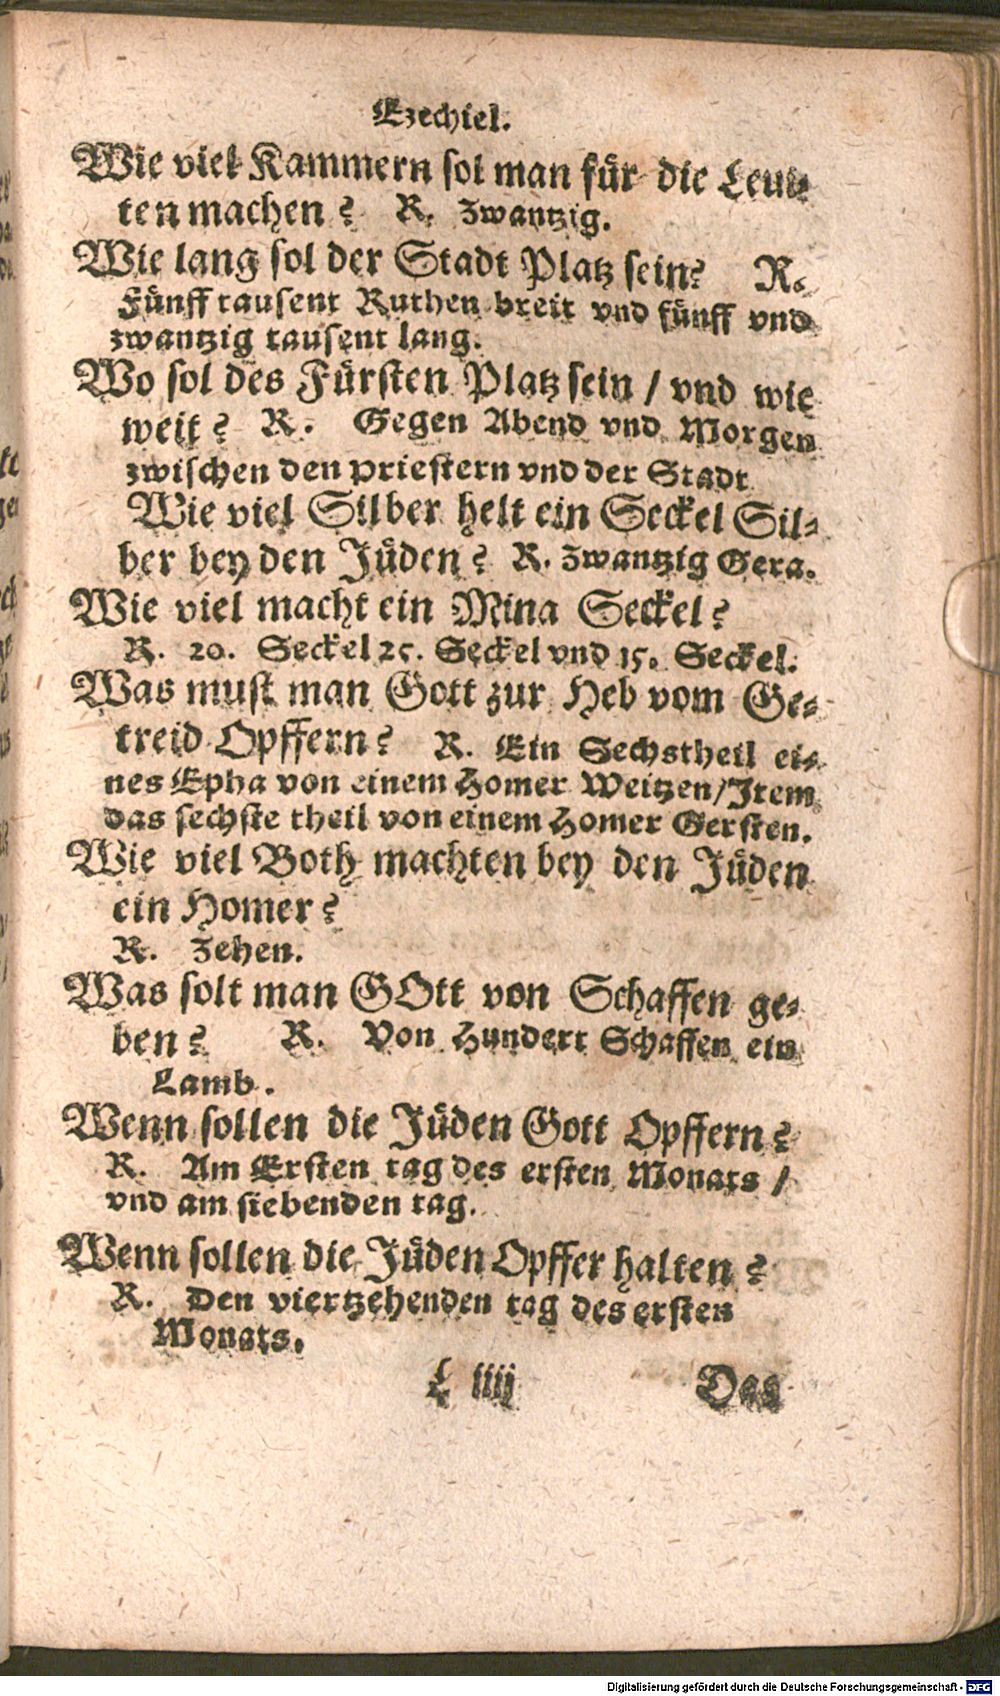 Ezechiel.
Wie viel Kammern sol man für die Levi⸗
ten machen? R. Zwantzig.
Wie lang sol der Stadt Platz sein? R.
Fünff tausent Ruthen breit vnd fünff vnd
zwantzig tausent lang.
Wo sol des Fürsten Platz sein / vnd wie
weit? R. Gegen Abend vnd Morgen
zwischen den priestern vnd der Stadt
Wie viel Silber helt ein Seckel Sil⸗
ber bey den Jüden? R. Zwantzig Gera.
Wie viel macht ein Mina Seckel?
R. 20. Seckel 25. Seckel vnd 15. Seckel.
Was must man Gott zur Heb vom Ge⸗
treid Opffern? R. Ein Sechstheil ei⸗
nes Epha von einem Homer Weitzen/Item
das sechste theil von einem Homer Gersten.
Wie viel Both machten bey den Jüden
ein Homer?
R. Zehen.
Was solt man GOtt von Schaffen ge⸗
ben? R. Von Hundert Schaffen ein
Lamb.
Wenn sollen die Jüden Gott Opffern?
R. Am Ersten tag des ersten Monats /
vnd am siebenden tag.
Wenn sollen die Jüden Opffer halten?
R. Den viertzehenden tag des ersten
Monats.
L iiij Das
Digitalisierung gefördert durch die Deutsche Forschungsgemeinschaft - DFG